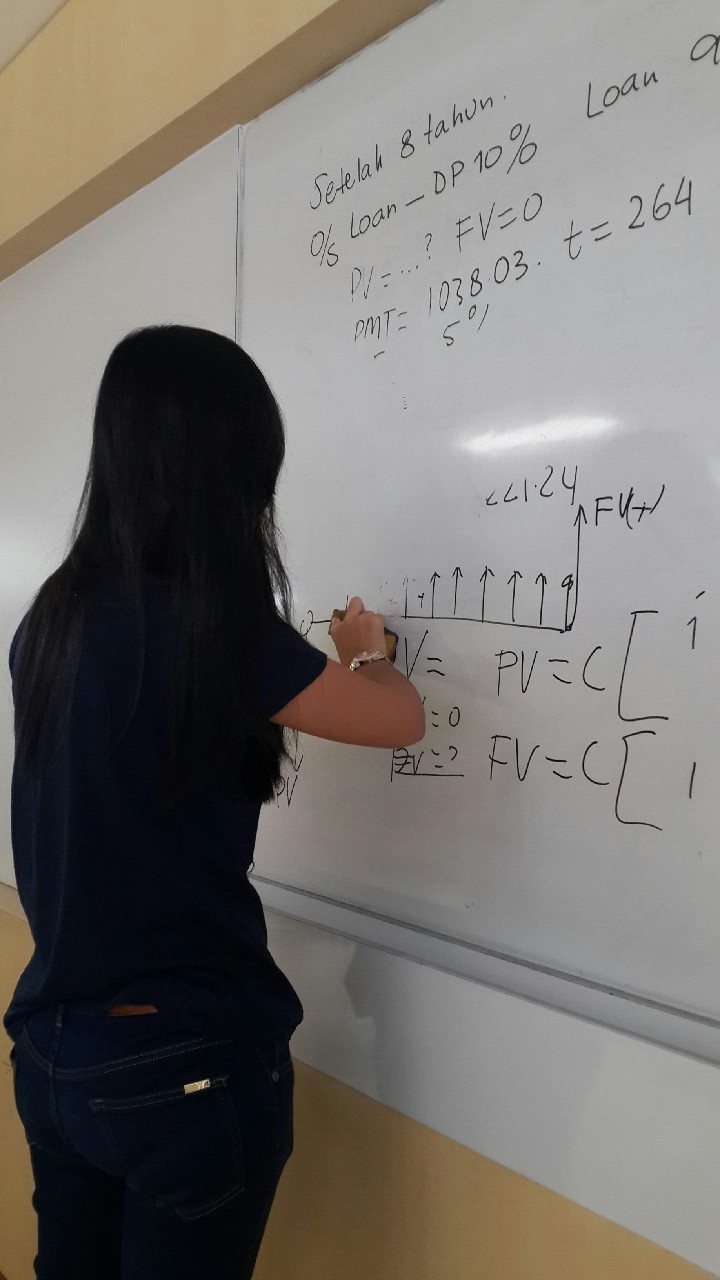 Setelah 8 tahun.
O/S Loan - DP 10%
Loan
PV = ...? FV=0
PMT= 1038.03. t = 264
5%
<<1.24
FV(+)
0
V= PV = C [ 1
=0
FV=? FV = C [ 1
PV